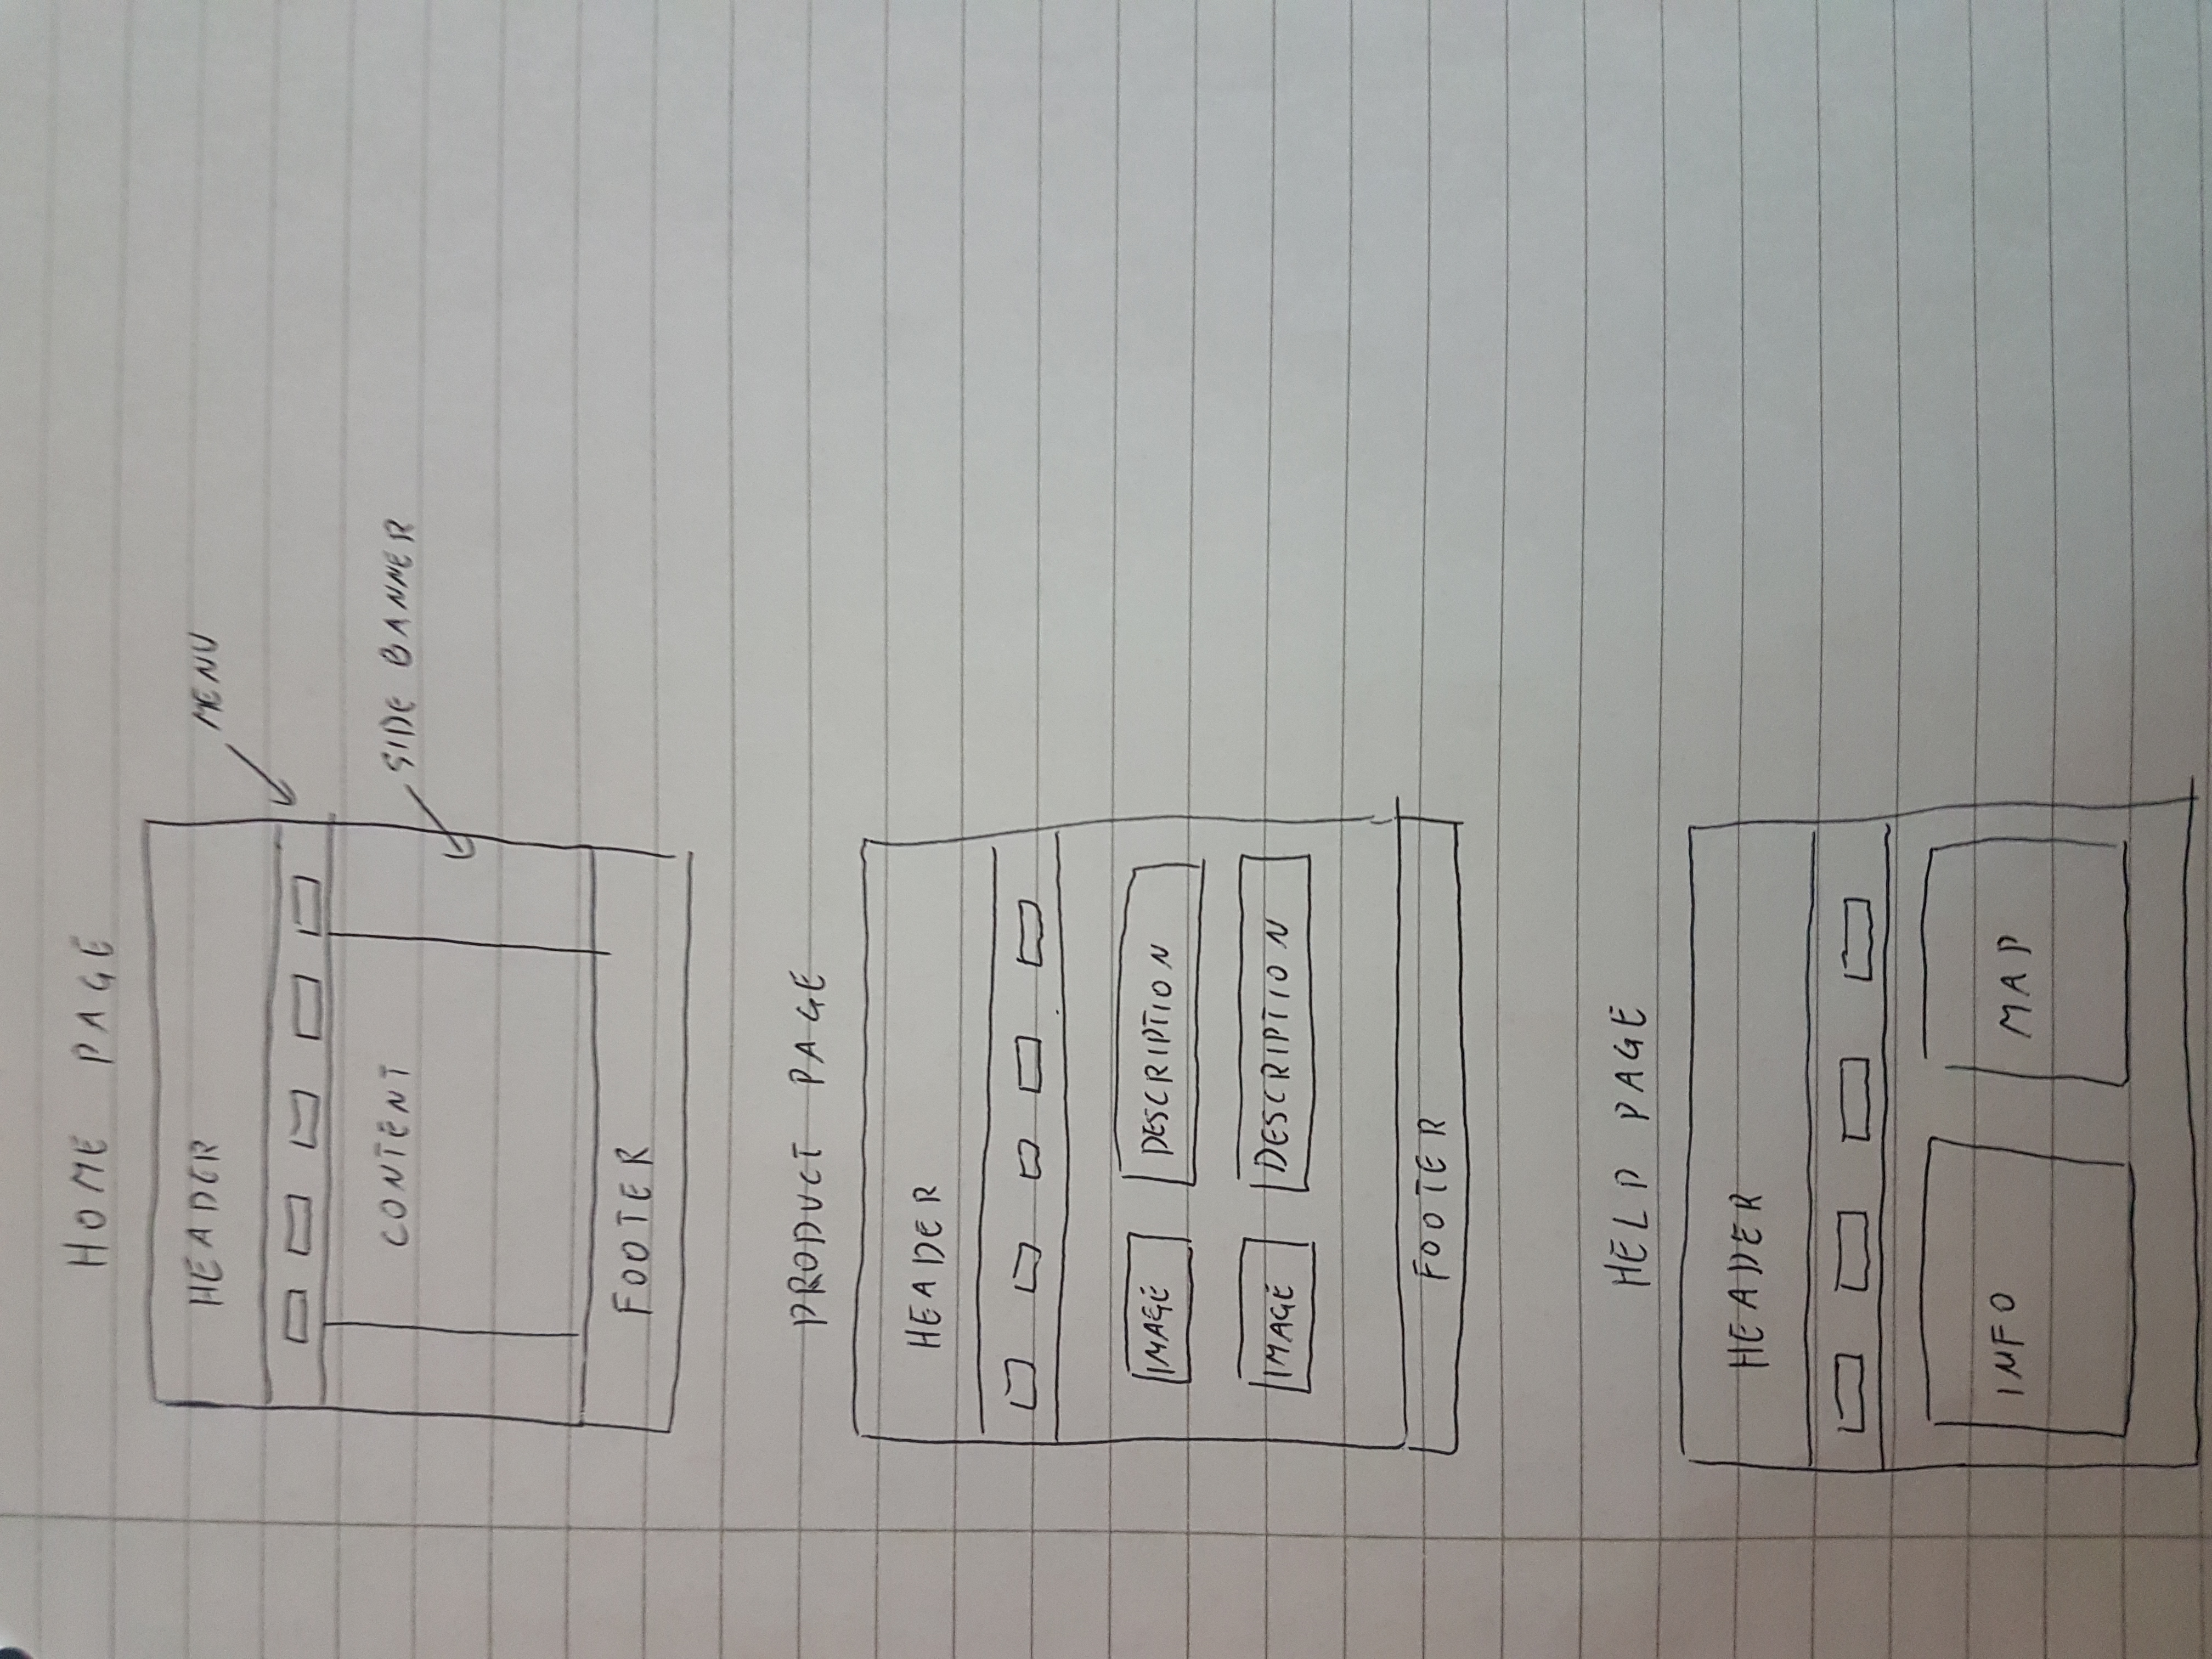 HOME PAGE
HEADER
MENU
CONTENT
SIDE BANNER
FOOTER
PRODUCT PAGE
HEADER
IMAGE DESCRIPTION
IMAGE DESCRIPTION
FOOTER
HELP PAGE
HEADER
INFO MAP